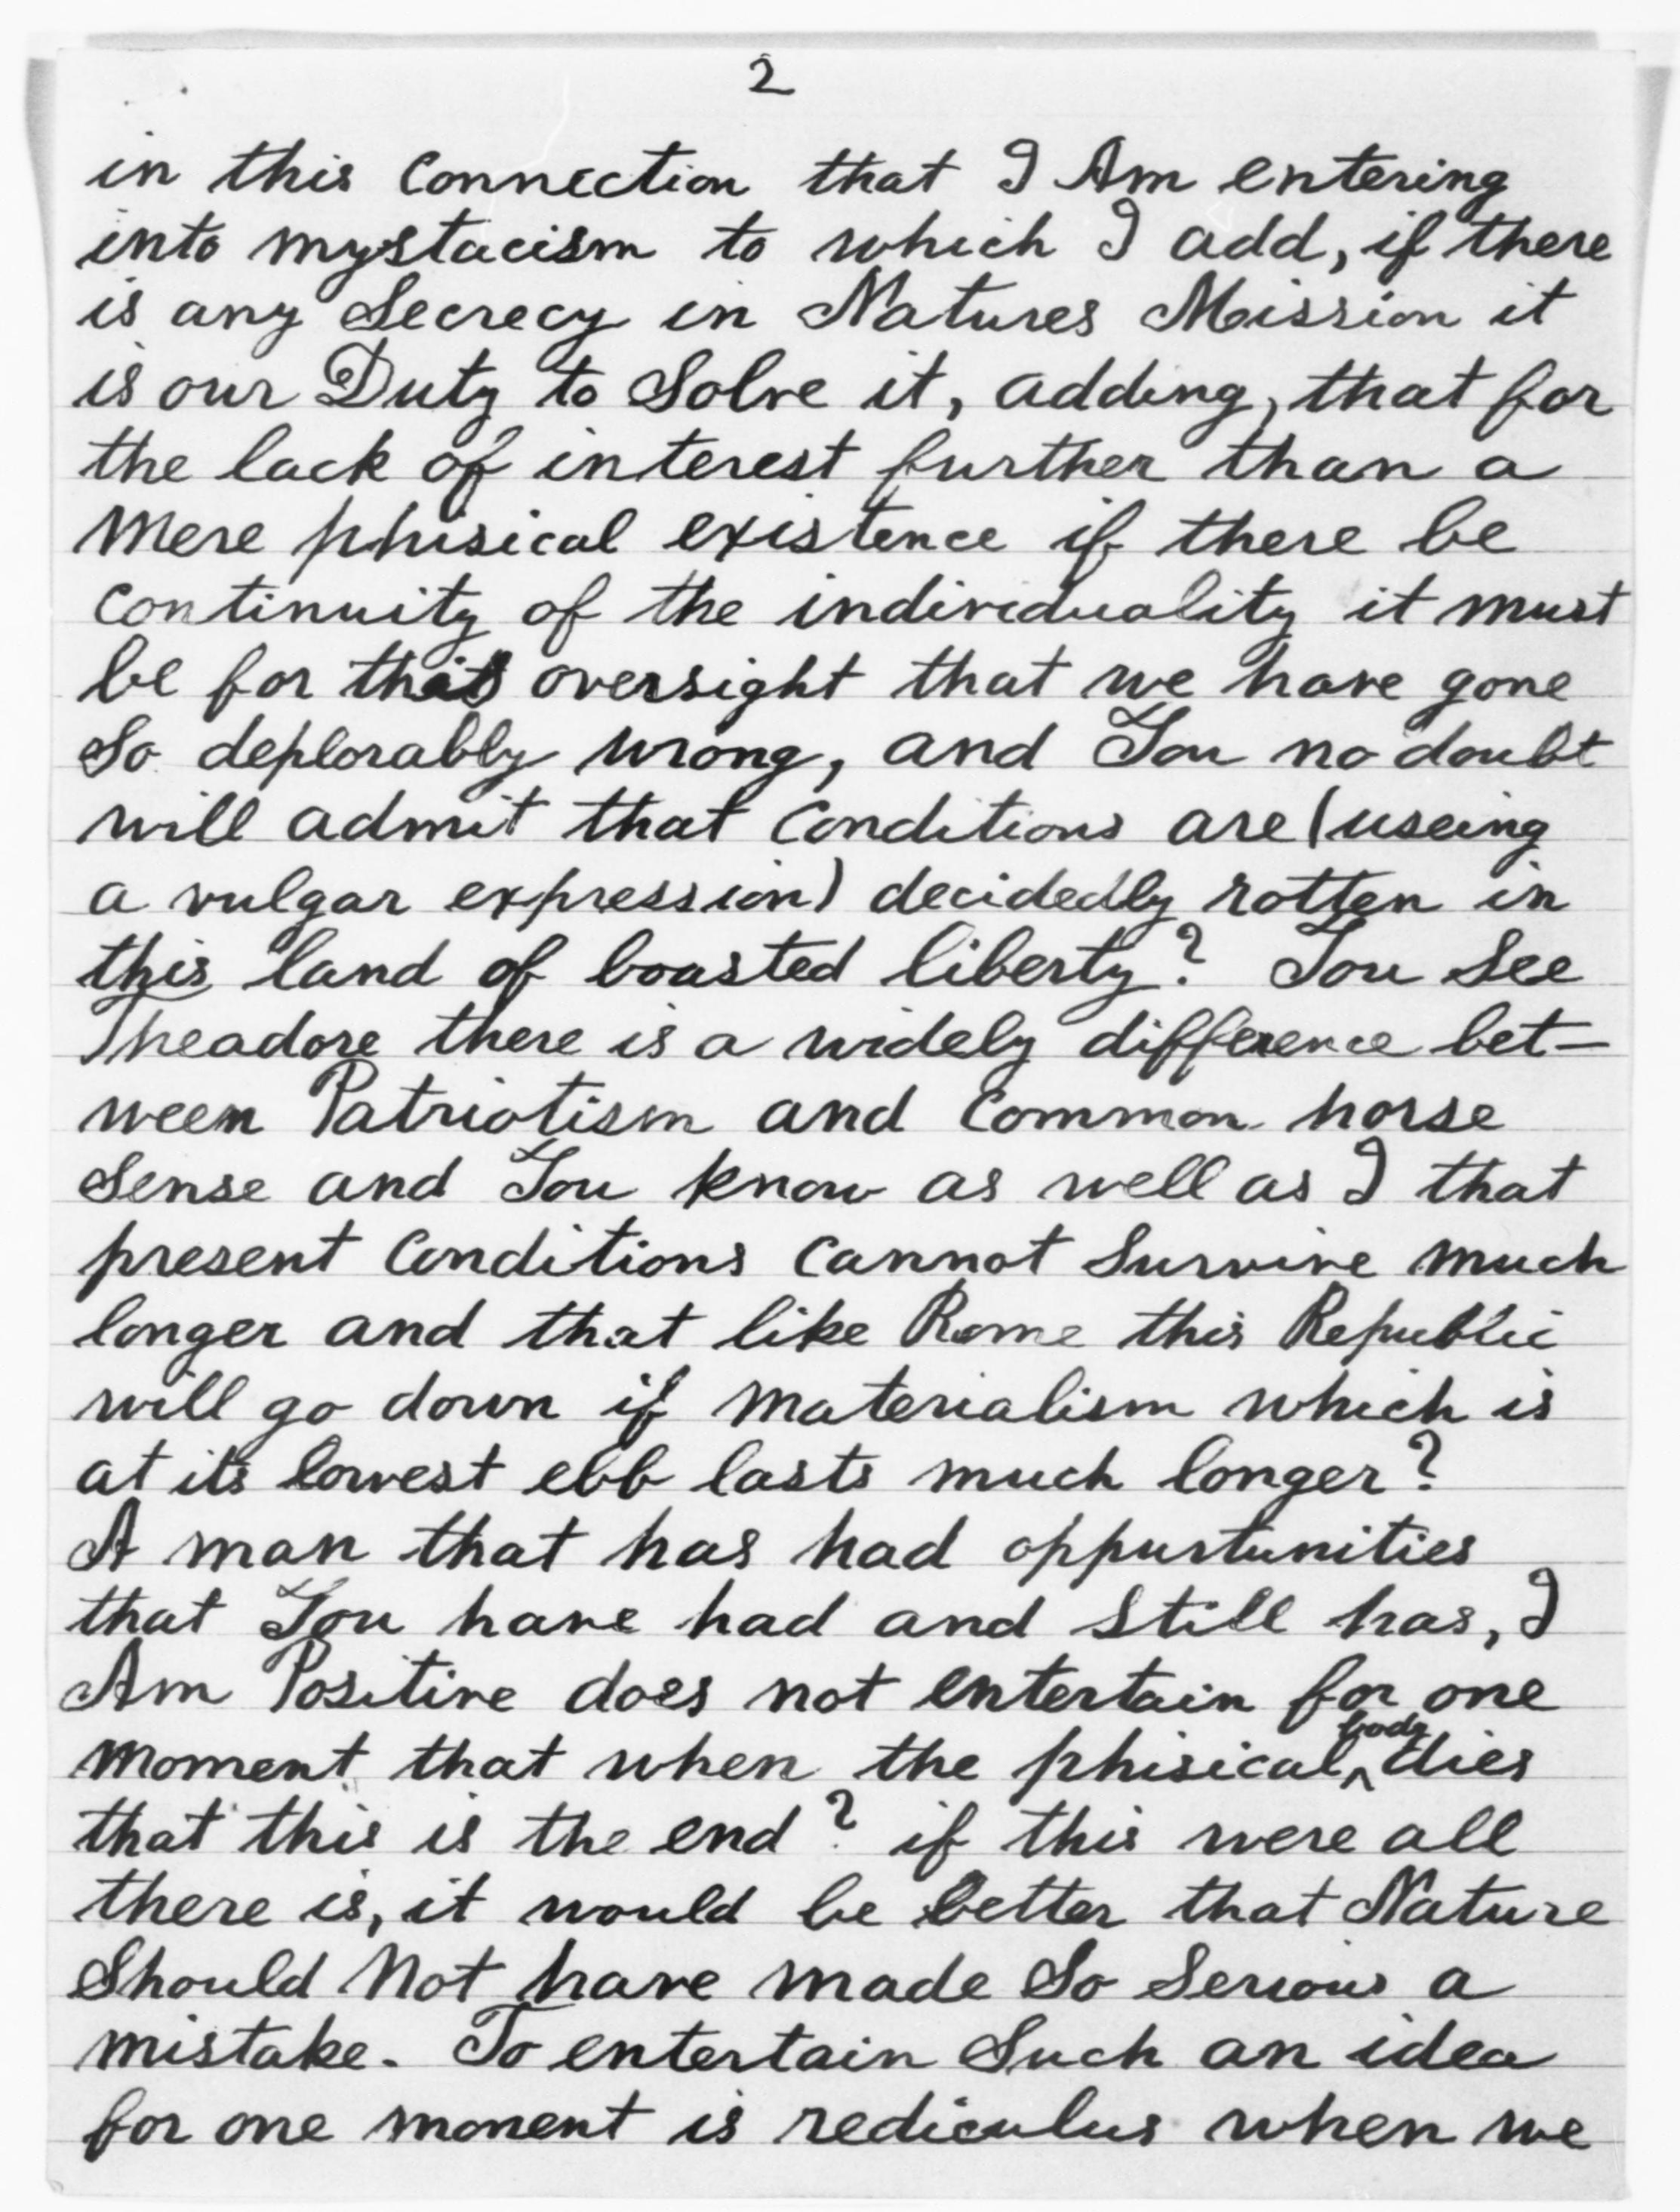 2
in this Connection that I Am entering
into mystacism to which I add, if there
is any Secrecy in Natures Mission it
is our Duty to Solve it, adding, that for
the lack of interest further than a
Mere phisical existence if there be
Continuity of the individuality it must
be for this oversight that we have gone
So deplorably wrong, and You no doubt
will admit that Conditions are (useing
a vulgar expression) decidedly rotten in
this land of boasted liberty? You See
Theadore there is a widely difference bet-
ween Patriotism and Common horse
Sense and You know as well as I that
present Conditions Cannot Survive much
longer and that like Rome this Republic
will go down if Materialism which is
at its lowest ebb lasts much longer?
A man that has had oppurtunities
that You have had and Still has, I
Am Positive does not entertain for one
Moment that when the phisical ^body dies
that this is the end? if this were all
there is, it would be better that Nature
Should Not have made So Serious a
mistake. To entertain Such an idea
for one moment is rediculus when we